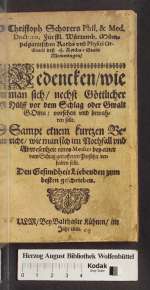 Christoph Schorers Phil. & Med.
Doctoris, Fürstl. Würtemb. Mömp-
pelgartischen Raths und Physici Or-
Memmingen/
Bedencken/wie
man sich/ nechst Göttlicher
Hülff vor dem Schlag oder Gewalt
GOttes/ vorsehen und bewah-
ren solle.
Sampt einem kurtzen Be-
richt/ wie man sich im Nothfall und
Abwesenheit eines Medici bey einer
vom Schlag getroffenen Person ver-
halten solle.
Den Gesundheit-Liebenden zum
besten geschrieben.
ULM/ Bey Balthasar Kühnen/ im
Jahr
Herzog August Bibliothek Wolfenbüttel
Kodak